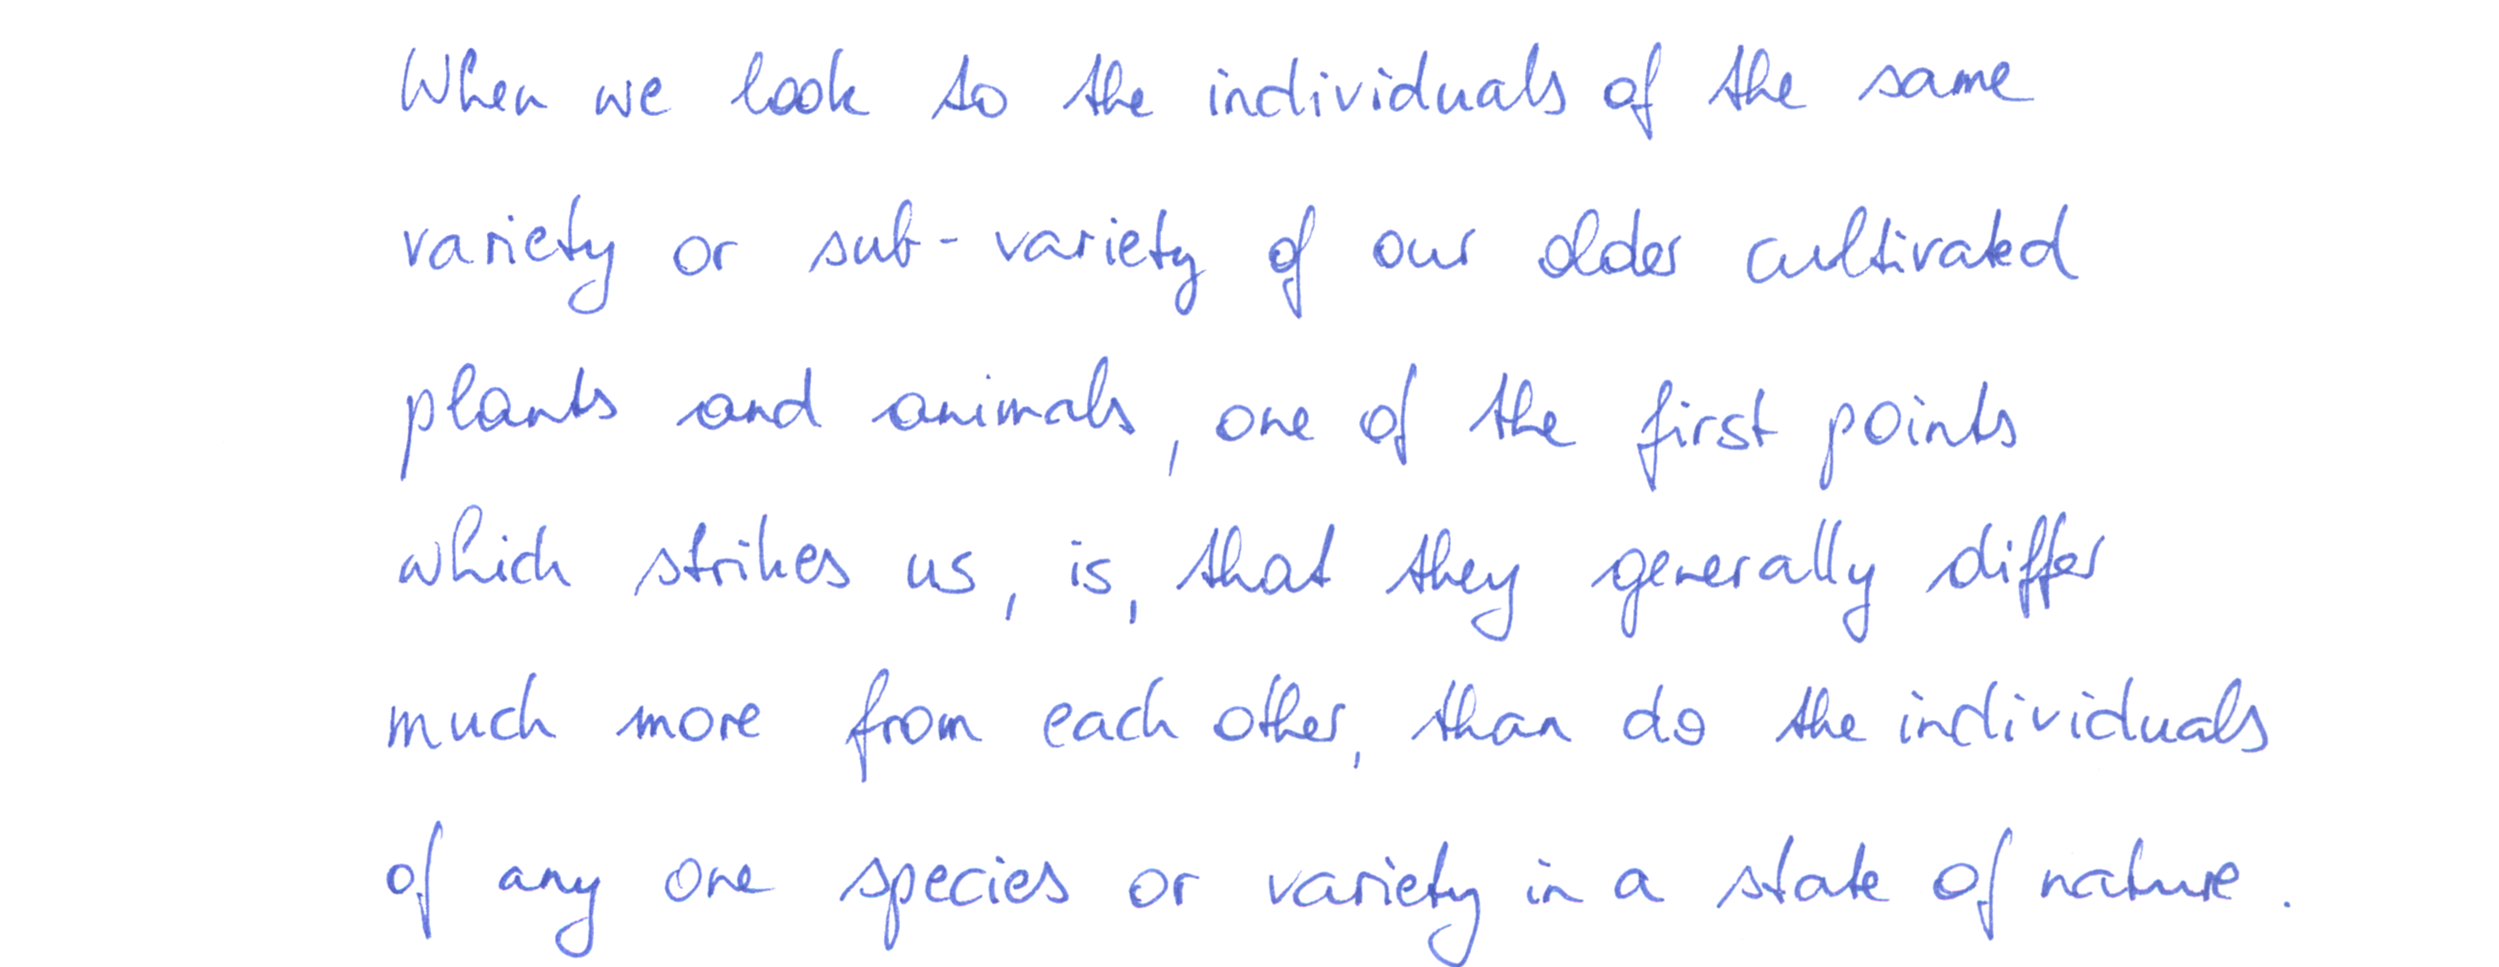 When we look to the individuals of the same
variety or sub-variety of our older cultivated
plants and animals, one of the first points
which strikes us, is, that they generally differ
much more from each other, than do the individuals
of any one species or variety in a state of nature.